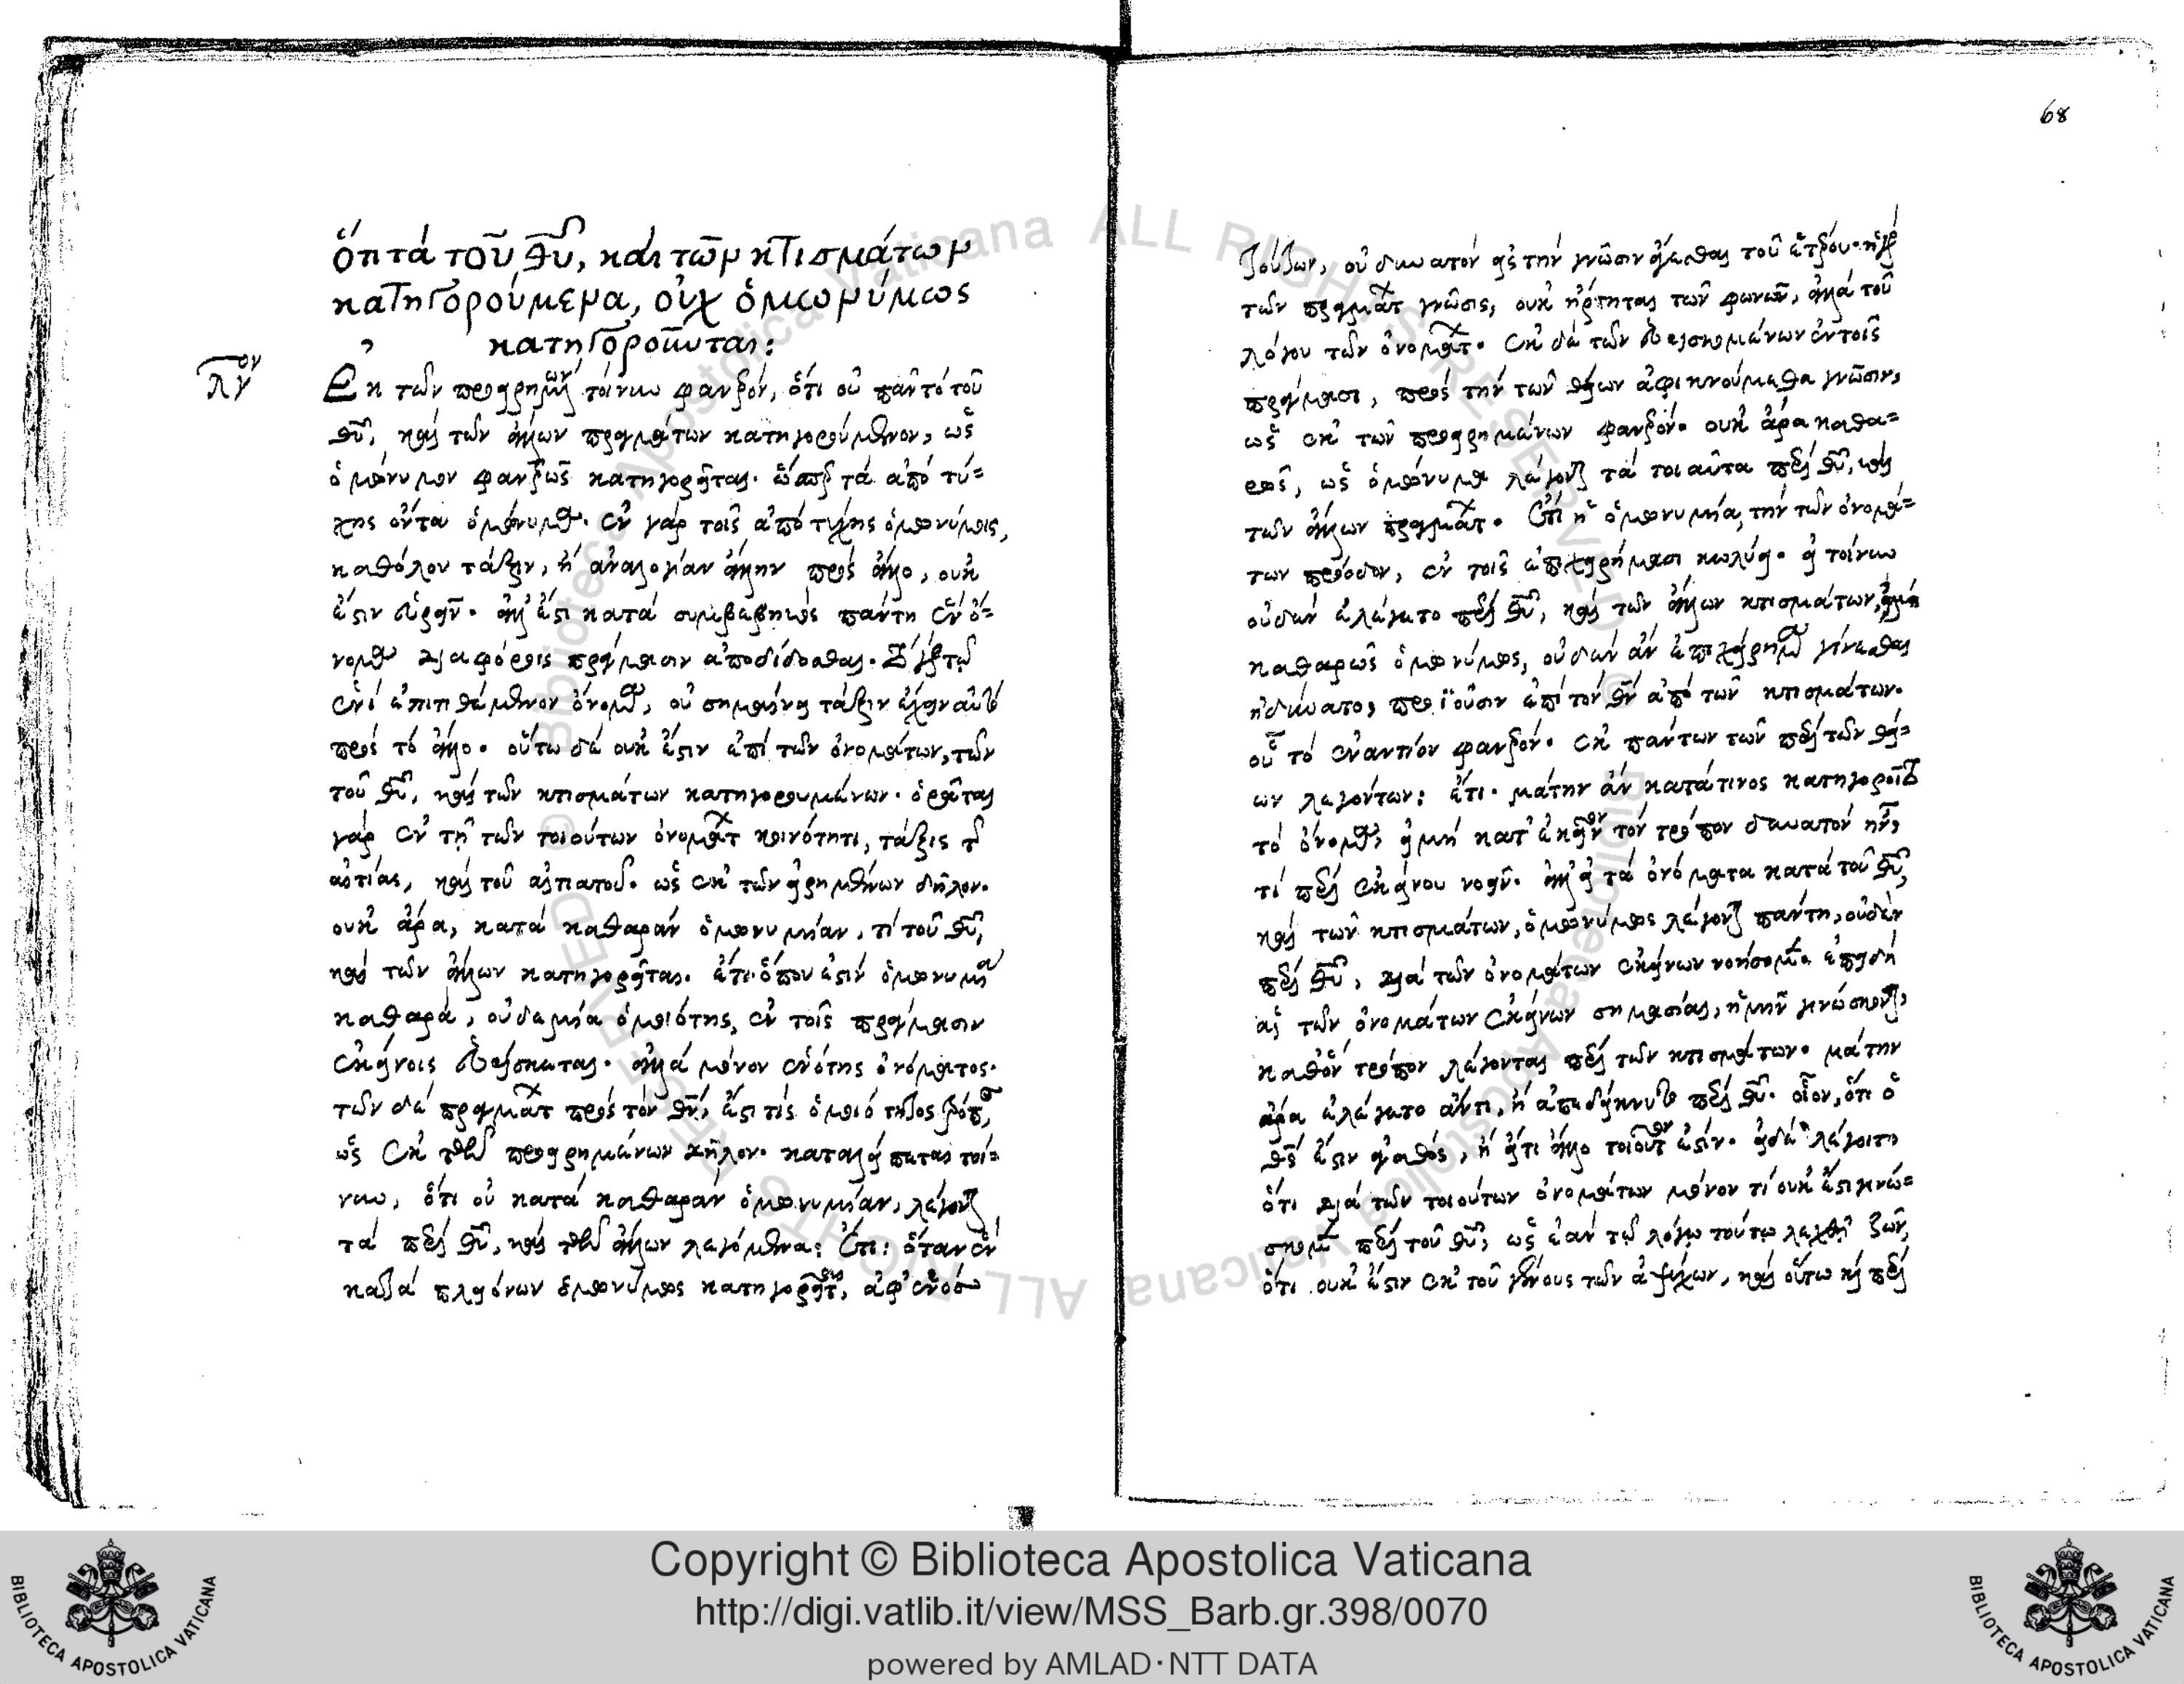 ὅτι τὰ τοῦ θῦ, καὶ τῶν κτισμάτων
κατηγορούμενα, οὐχ ὁμωνύμως
κατηγοροῦνται:
λγον
Ἐκ τῶν προειρημένων τοίνυν φανερόν, ὅτι οὐ πᾶν τὸ τοῦ
θῦ, καὶ τῶν ἄλλων πραγμάτων κατηγορούμενον, ὡς
ὁμώνυμον φανερῶς κατηγορεῖται. ὥσπερ τὰ ἀπὸ τύ=
χης ὄντα ὁμώνυμα. ἐν γὰρ τοῖς ἀπὸ τύχης ὁμωνύμοις,
καθόλου τάξιν, ἢ ἀναλογίαν ἄλλην πρὸς ἄλλο, οὐκ
ἔστιν εὑρεῖν. ἀλλ' ἔστι κατὰ συμβεβηκὸς πάντη ἓν ὄ=
νομα διαφόροις πράγμασιν ἀποδίδοσθαι. τὸ γὰρ τῷ
ἑνὶ ἐπιτιθέμενον ὄνομα, οὐ σημαίνει τάξιν ἔχειν αὐτὸ
πρὸς τὸ ἄλλο. οὕτω δὲ οὐκ ἔστιν ἐπὶ τῶν ὀνομάτων, τῶν
τοῦ θῦ, καὶ τῶν κτισμάτων κατηγορουμένων. ὁρᾶται
γὰρ ἐν τῇ τῶν τοιούτων ὀνομάτων κοινότητι, τάξις τῆς
αἰτίας, καὶ τοῦ αἰτιατοῦ. ὡς ἐκ τῶν εἰρημένων δῆλον.
οὐκ ἄρα, κατὰ καθαρὰν ὁμωνυμίαν, τὶ τοῦ θῦ,
καὶ τῶν ἄλλων κατηγορεῖται. ἔτι ὅπου ἐστὶν ὁμωνυμία
καθαρά, οὐδεμία ὁμοιότης, ἐν τοῖς πράγμασιν
ἐκείνοις εὑρίσκεται. ἀλλὰ μόνον ἑνότης ὀνόματος.
τῶν δὲ πραγμάτων πρὸς τὸν θν, ἔστι τις ὁμοιότητος τρόπος,
ὡς ἐκ τῶν προειρημένων δῆλον. καταλείπεται τοί=
νυν, ὅτι οὐ κατὰ καθαρὰν ὁμωνυμίαν, λέγονται
τὰ περὶ θῦ, καὶ τῶν ἄλλων λεγόμενα: Ἔτι: ὅταν ἓν
κατὰ πλειόνων ὁμωνύμως κατηγορεῖται, ἀφ' ἑνὸς
68
τούτων, οὐ δυνατὸν εἰς τὴν γνῶσιν ἐλθεῖν τοῦ ἑτέρου. ἡ γὰρ
τῶν πραγμάτων γνῶσις, οὐκ ἤρτηται τῶν φωνῶν, ἀλλὰ τοῦ
λόγου τῶν ὀνομάτων. ἐκ δὲ τῶν εὑρισκομένων ἐν τοῖς
πράγμασι, πρὸς τὴν τῶν θείων ἀφικνούμεθα γνῶσιν,
ὡς ἐκ τῶν προειρημένων φανερόν. οὐκ ἄρα καθα=
ρῶς, ὡς ὁμώνυμα λέγονται τὰ τοιαῦτα περὶ θῦ, καὶ
τῶν ἄλλων πραγμάτων. Ἔτι ἡ ὁμωνυμία, τὴν τῶν ὀνομά=
των πρόοδον, ἐν τοῖς ἐπιχειρήμασι κωλύει. εἰ τοίνυν
οὐδὲν ἐλέγετο περὶ θῦ, καὶ τῶν ἄλλων κτισμάτων, εἰ μὴ
καθαρῶς ὁμωνύμως, οὐδὲν ἂν ἐπιχείρημα γίνεσθαι
ἠδύνατο, προϊοῦσιν ἐπὶ τὸν θν ἀπὸ τῶν κτισμάτων.
οὗ τὸ ἐναντίον φανερόν. ἐκ πάντων τῶν περὶ τῶν θεί=
ων λεγόντων: ἔτι. μάτην ἂν κατά τινος κατηγοροῖτο
τὸ ὄνομα, εἰ μὴ κατ' ἐκεῖνον τὸν τρόπον δυνατὸν ἦν,
τὶ περὶ ἐκείνου νοεῖν. ἀλλ' εἰ τὰ ὀνόματα κατὰ τοῦ θῦ,
καὶ τῶν κτισμάτων, ὁμωνύμως λέγονται πάντη, οὐδὲν
περὶ θῦ, διὰ τῶν ὀνομάτων ἐκείνων νοήσομεν. ἐπειδὴ
αἱ τῶν ὀνομάτων ἐκείνων σημασίαι, ἡμῖν γινώσκονται,
καθ' ὃν τρόπον λέγονται περὶ τῶν κτισμάτων. μάτην
ἄρα ἐλέγετο ἄν τι, ἢ ἀπεδείκνυτο περὶ θῦ. οἷον, ὅτι ὁ
θς ἐστιν ἀγαθός, ἢ εἴ τι ἄλλο τοιοῦτον ἐστίν. εἰ δὲ λέγοιτο
ὅτι διὰ τῶν τοιούτων ὀνομάτων μόνον τί οὐκ ἔστι γινώ=
σκομεν περὶ τοῦ θῦ, ὡς ἐὰν τῷ λόγῳ τούτῳ λεχθῇ ζῶν,
ὅτι οὐκ ἔστιν ἐκ τοῦ γένους τῶν ἀψύχων, καὶ οὕτω καὶ περὶ
© Biblioteca Apostolica Vaticana ALL RIGHTS RESERVED
Copyright © Biblioteca Apostolica Vaticana
http://digi.vatlib.it/view/MSS_Barb.gr.398/0070
powered by AMLAD·NTT DATA
BIBLIOTECA APOSTOLICA VATICANA
BIBLIOTECA APOSTOLICA VATICANA